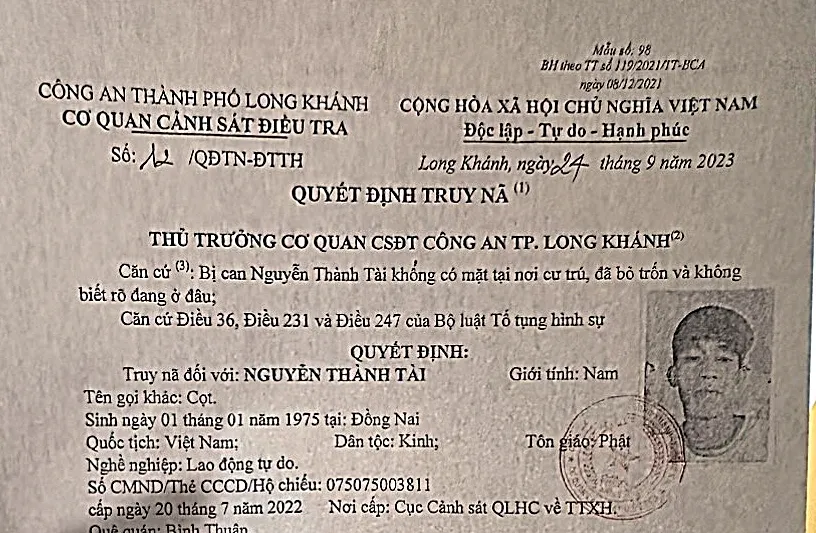 Mẫu số. 98
BH theo TT số 119/2021/TT-BCA
ngày 08/12/2021
CÔNG AN THÀNH PHỐ LONG KHÁNH
CƠ QUAN CẢNH SÁT ĐIỀU TRA
Số: 12 /QĐTN-ĐTTH
CỘNG HÒA XÃ HỘI CHỦ NGHĨA VIỆT NAM
Độc lập - Tự do - Hạnh phúc
Long Khánh, ngày 24 tháng 9 năm 2023
QUYẾT ĐỊNH TRUY NÃ (1)
THỦ TRƯỞNG CƠ QUAN CSĐT CÔNG AN TP. LONG KHÁNH(2)
Căn cứ (3): Bị can Nguyễn Thành Tài không có mặt tại nơi cư trú, đã bỏ trốn và không
biết rõ đang ở đâu;
Căn cứ Điều 36, Điều 231 và Điều 247 của Bộ luật Tố tụng hình sự
QUYẾT ĐỊNH:
Truy nã đối với: NGUYỄN THÀNH TÀI Giới tính: Nam
Tên gọi khác: Cọt.
Sinh ngày 01 tháng 01 năm 1975 tại: Đồng Nai
Quốc tịch: Việt Nam; Dân tộc: Kinh; Tôn giáo: Phật
Nghề nghiệp: Lao động tự do.
Số CMND/Thẻ CCCD/Hộ chiếu: 075075003811
cấp ngày 20 tháng 7 năm 2022 Nơi cấp: Cục Cảnh sát QLHC về TTXH.
Quê quán: Bình Thuận